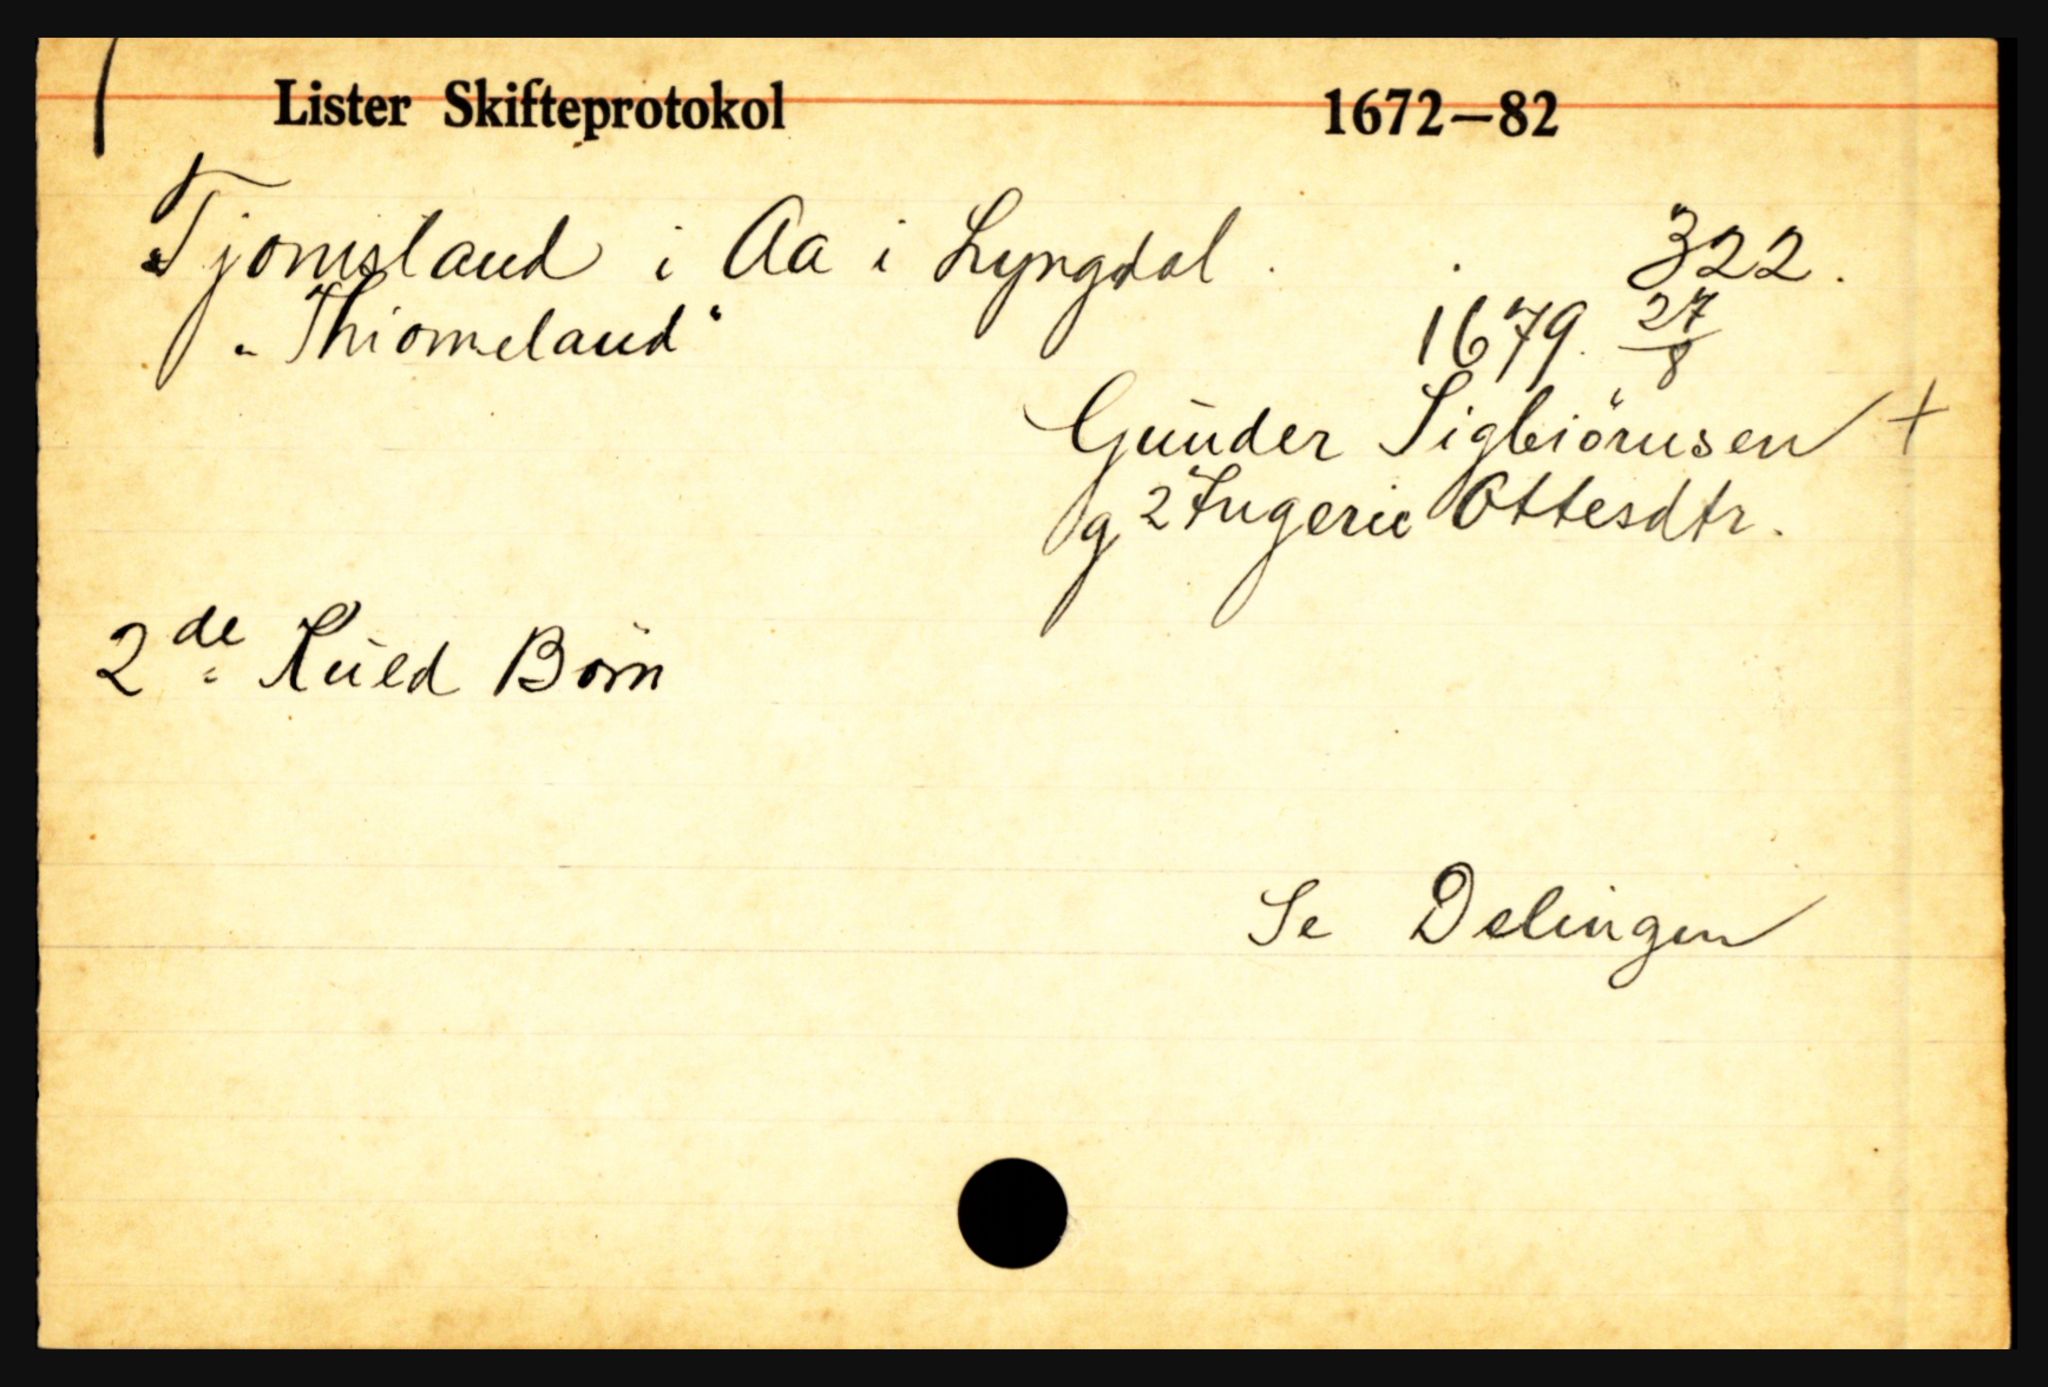 Lister Skifteprotokol 1672–82
Tjomsland i Aa i Lyngdal . . 322.
"Thiomeland"
1679. 27/8
Gunder Sigbiörnsen +
g 2 Ingerie Ottesdtr.
2de Kuld Börn
Se Delingen